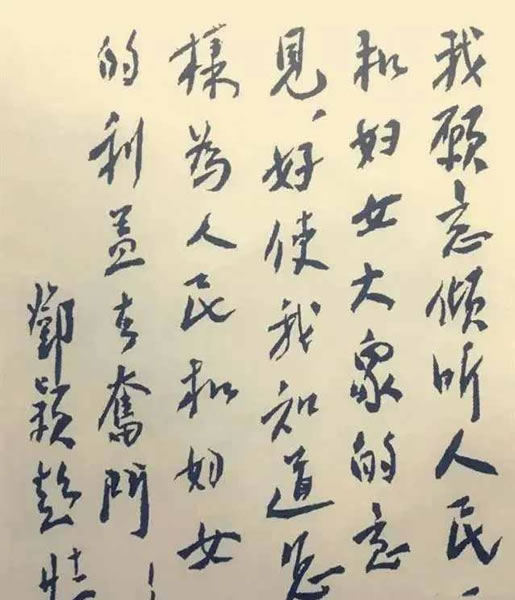 我願意傾听人民、
和妇女大衆的意
見、好使我知道怎
樣為人民和妇女
的利益去奮鬥！
鄧颖超